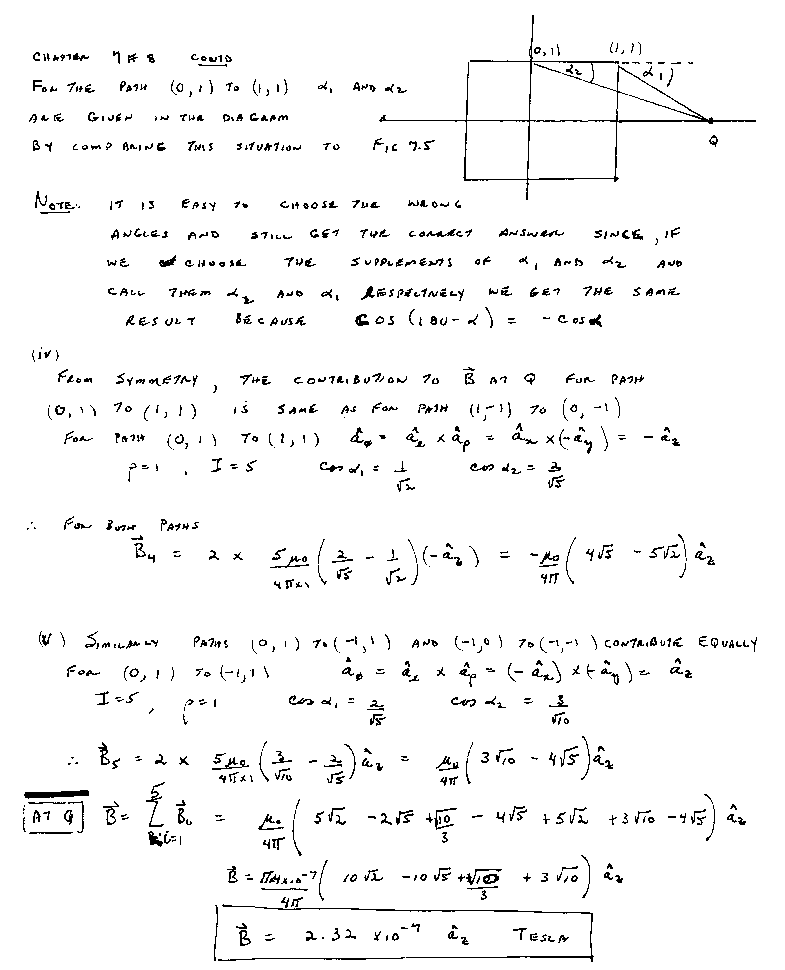 (0,1) (1,1)
CHAPTER 7 # 8 CONTD
α₂ α₁
FOR THE PATH (0,1) TO (1,1) α₁ AND α₂
ARE GIVEN IN THE DIAGRAM
BY COMPARING THIS SITUATION TO FIG 7.5
Q
NOTE: IT IS EASY TO CHOOSE THE WRONG
ANGLES AND STILL GET THE CORRECT ANSWER SINCE, IF
WE CHOOSE THE SUPPLEMENTS OF α₁ AND α₂ AND
CALL THEM α₂ AND α₁ RESPECTIVELY WE GET THE SAME
RESULT BECAUSE COS (180-α) = -COSα
(iv)
FROM SYMMETRY, THE CONTRIBUTION TO B⃗ AT Q FOR PATH
(0,1) TO (1,1) IS SAME AS FOR PATH (1,-1) TO (0,-1)
FOR PATH (0,1) TO (1,1) âφ = âℓ × âρ = âx × (-ây) = -âz
ρ=1, I=5 cos α₁ = 1/√2 cos α₂ = 2/√5
∴ FOR BOTH PATHS
B⃗₄ = 2 × 5μ₀/4π×1 (2/√5 - 1/√2)(-âz) = -μ₀/4π (4√5 - 5√2) âz
(v) SIMILARLY PATHS (0,1) TO (-1,1) AND (-1,0) TO (-1,-1) CONTRIBUTE EQUALLY
FOR (0,1) TO (-1,1) âφ = âℓ × âρ = (-âx) × (-ây) = âz
I=5, ρ=1 cos α₁ = 2/√5 cos α₂ = 3/√10
∴ B⃗₅ = 2 × 5μ₀/4π×1 (3/√10 - 2/√5) âz = μ₀/4π (3√10 - 4√5) âz
AT Q B⃗ = 5 Σ i=1 B⃗i = μ₀/4π (5√2 - 2√5 + √10/3 - 4√5 + 5√2 + 3√10 - 4√5) âz
B⃗ = π4×10⁻⁷/4π (10√2 - 10√5 + √10/3 + 3√10) âz
B⃗ = 2.32 ×10⁻⁷ âz TESLA